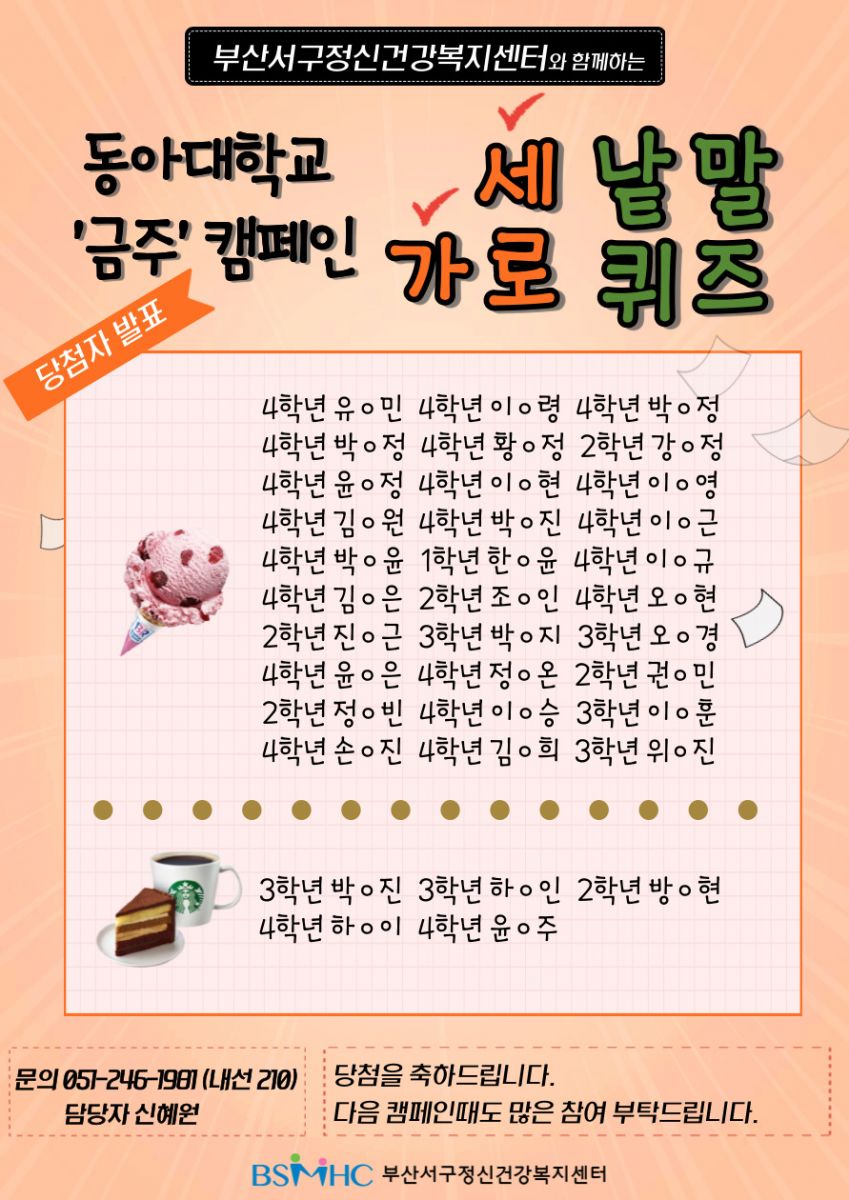 부산서구정신건강복지센터와 함께하는
동아대학교
'금주' 캠페인
세 낱말
가로 퀴즈
당첨자 발표
4학년 유ㅇ민 4학년 이ㅇ령 4학년 박ㅇ정
4학년 박ㅇ정 4학년 황ㅇ정 2학년 강ㅇ정
4학년 윤ㅇ정 4학년 이ㅇ현 4학년 이ㅇ영
4학년 김ㅇ원 4학년 박ㅇ진 4학년 이ㅇ근
4학년 박ㅇ윤 1학년 한ㅇ윤 4학년 이ㅇ규
4학년 김ㅇ은 2학년 조ㅇ인 4학년 오ㅇ현
2학년 진ㅇ근 3학년 박ㅇ지 3학년 오ㅇ경
4학년 윤ㅇ은 4학년 정ㅇ온 2학년 권ㅇ민
2학년 정ㅇ빈 4학년 이ㅇ승 3학년 이ㅇ훈
4학년 손ㅇ진 4학년 김ㅇ희 3학년 위ㅇ진
3학년 박ㅇ진 3학년 하ㅇ인 2학년 방ㅇ현
4학년 하ㅇ이 4학년 윤ㅇ주
문의 051-246-1981 (내선 210)
담당자 신혜원
당첨을 축하드립니다.
다음 캠페인때도 많은 참여 부탁드립니다.
BSMHC 부산서구정신건강복지센터